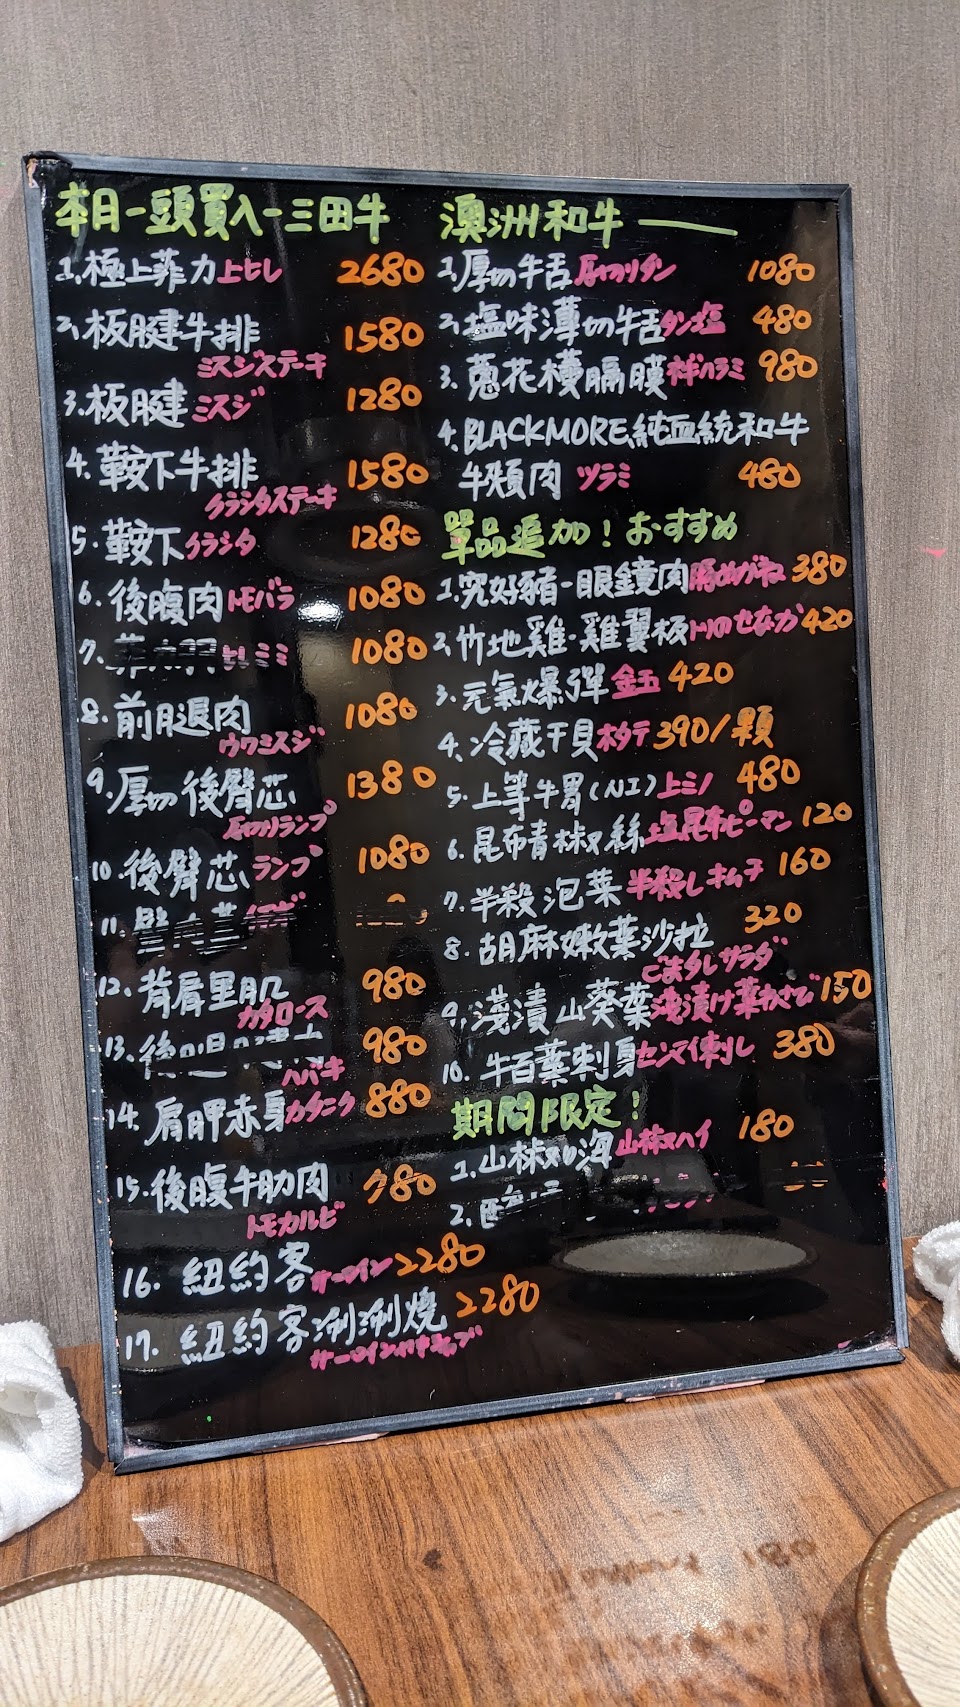 本月一頭買入-三田牛
1.極上菲力上ヒレ 2680
2.板腱牛排 1580
ミスジステーキ
3.板腱ミスジ 1280
4.鞍下牛排 1580
クラシタステーキ
5.鞍下クラシタ 1280
6.後腹肉トモバラ 1080
7. 1080
8.前腿退肉 1080
ウワミスジ
9.厚切後臀芯 1380
厚切りランプ
10.後臀芯ランプ 1080
11.
12.背肩里肌 980
カタロース
13. 980
ハバキ
14.肩胛赤身カタニク 880
15.後腹牛肋肉 980
トモカルビ
16.紐約客サーロイン 2280
17.紐約客涮涮燒 2280
澳洲和牛
1.厚切牛舌厚切りタン 1080
2.塩味薄切牛舌タン塩 480
3.蔥花橫膈膜ネギハラミ 980
4.BLACKMORE純血統和牛
牛頰肉 ツラミ 480
單品追加！おすすめ
1.究好豬-眼鏡肉豚めがね 380
2.竹地雞·雞翼板トリのせなか 420
3.元氣爆彈金玉 420
4.冷藏干貝ホタテ 390/顆
5.上等牛胃(NI)上ミノ 480
6.昆布青椒絲塩昆布ピーマン 120
7.半殺泡菜半殺しキムチ 160
8.胡麻嫩葉沙拉 320
ごまタレサラダ
9.淺漬山葵葉淺漬け葉わさび 150
10.牛百葉刺身センマイ刺し 380
期間限定！
1.山椒嗨山椒ハイ 180
2.